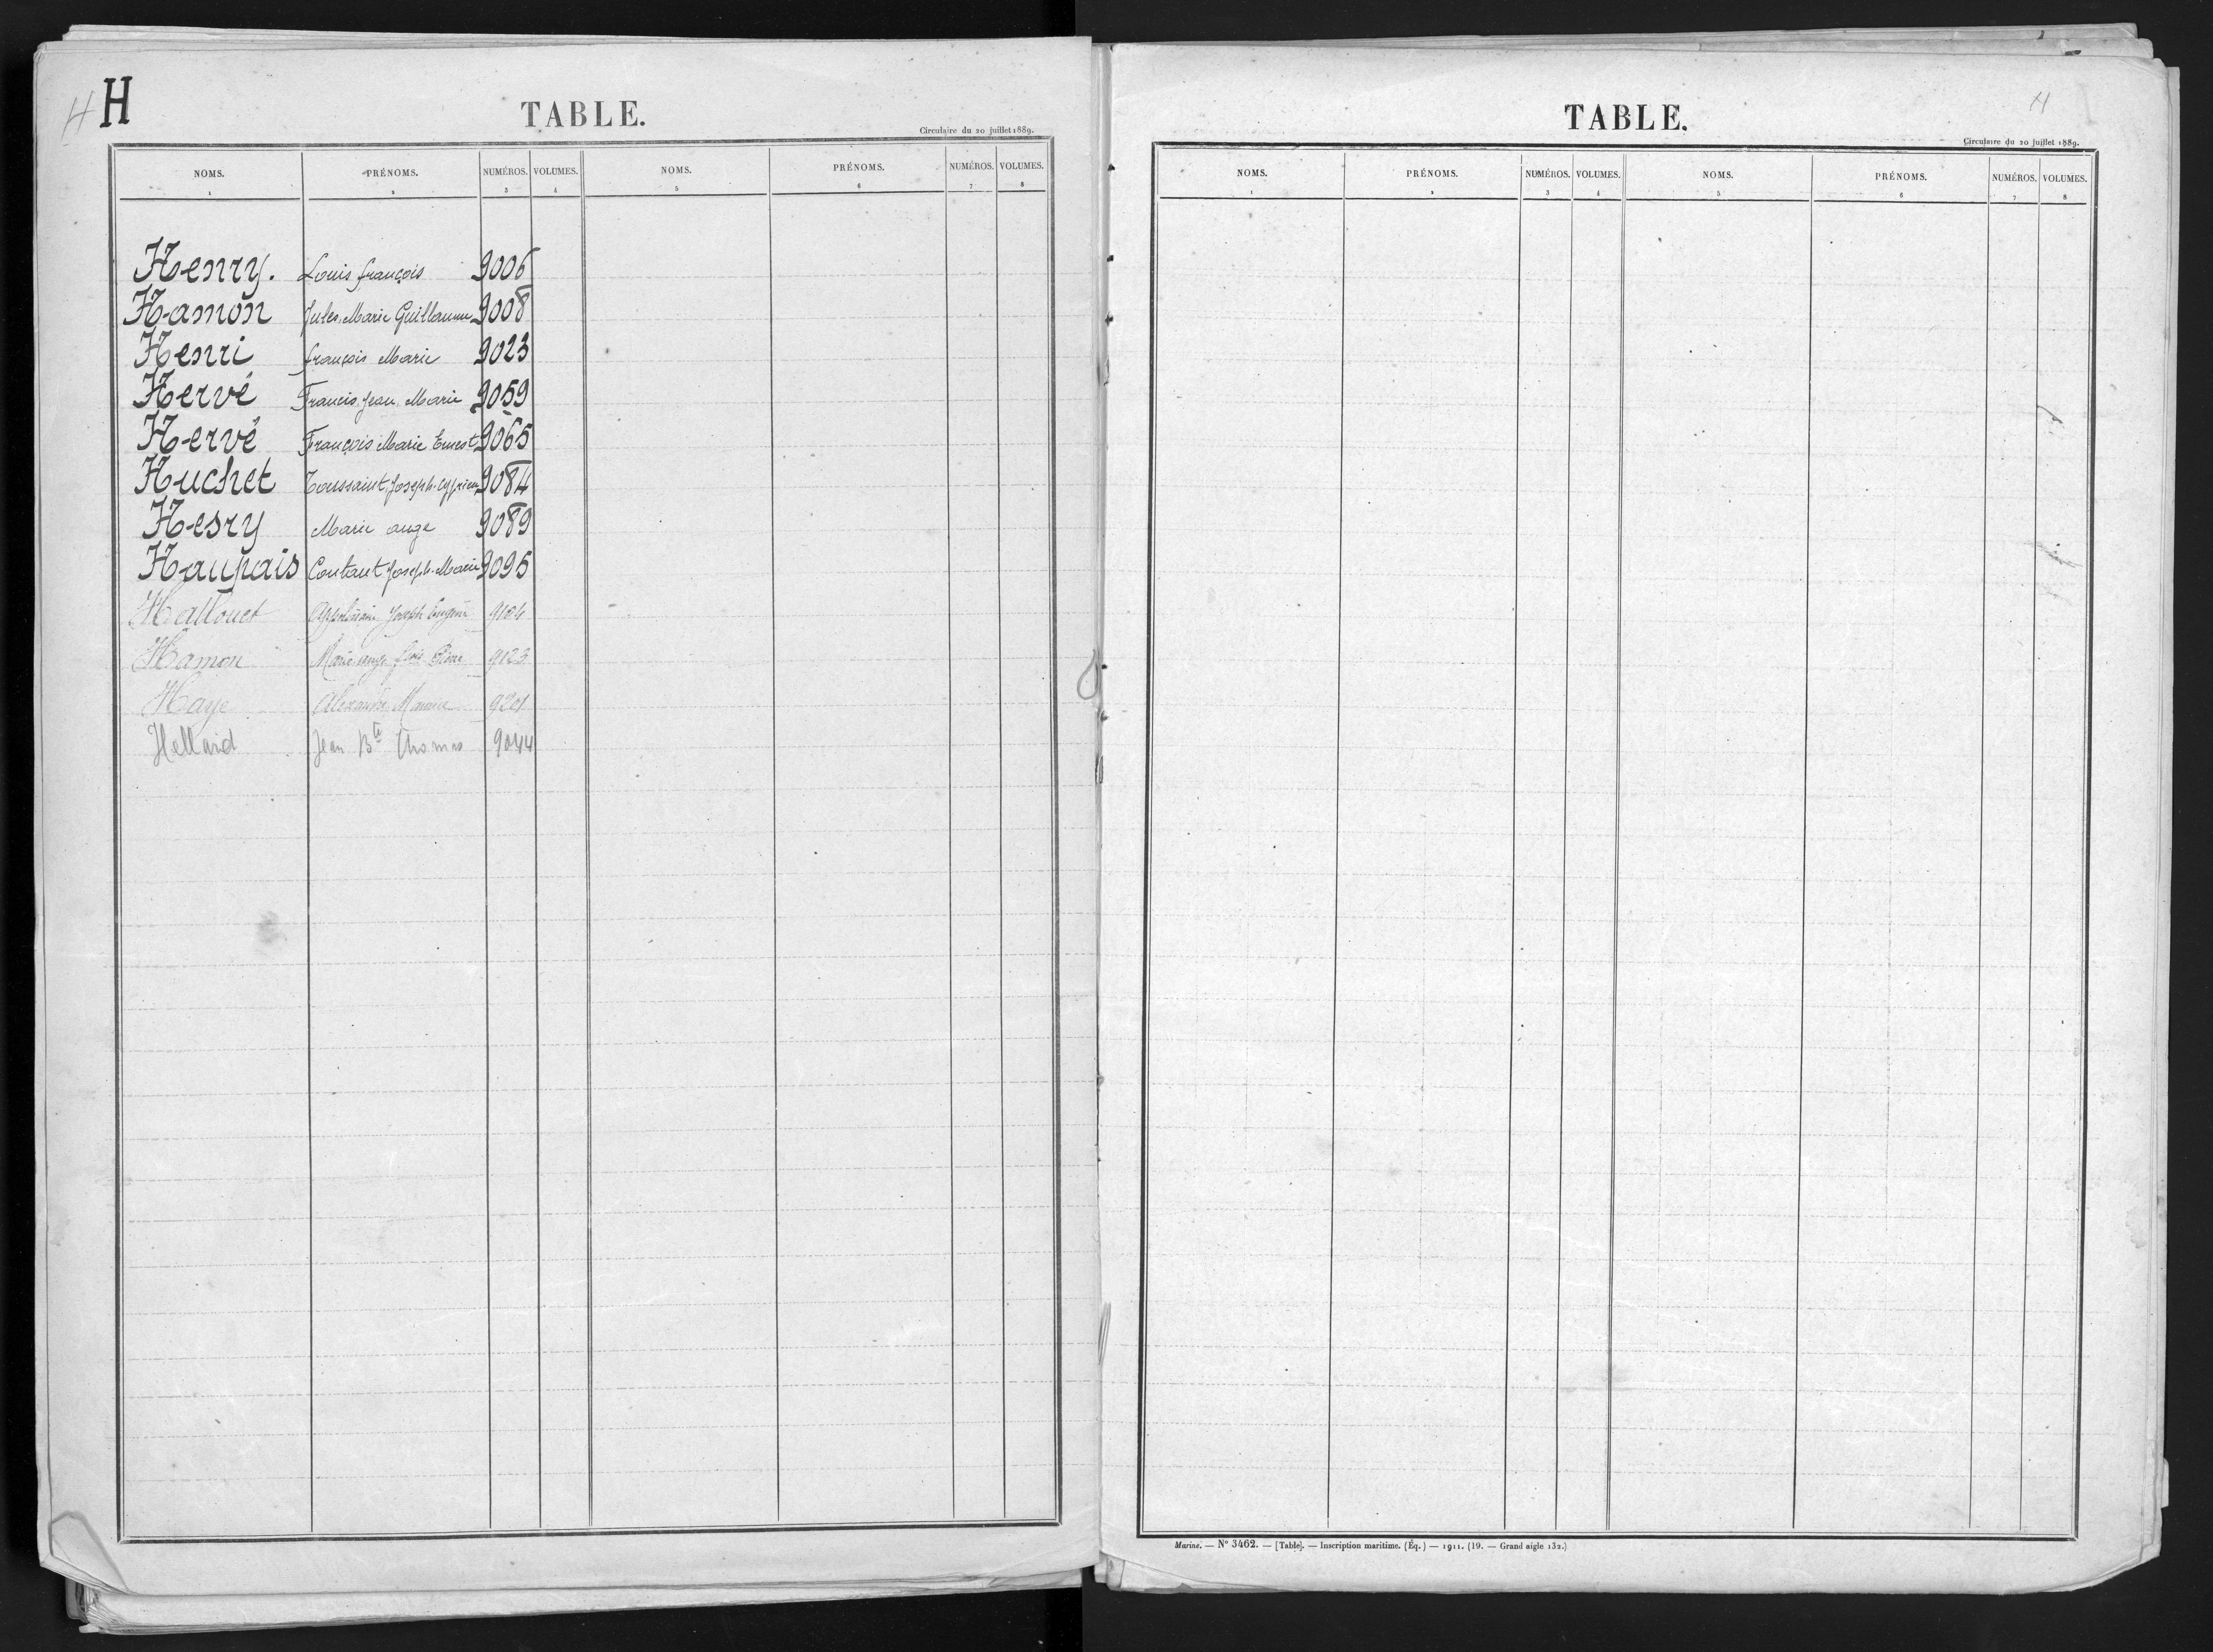 H H
TABLE.
Circulaire du 20 juillet 1889.
NOMS. PRÉNOMS. NUMÉROS. VOLUMES. NOMS. PRÉNOMS. NUMÉROS. VOLUMES.
1 2 3 4 5 6 7 8
Henry. Louis françois 9006
Hamon Jules Marie Guillaume 9008
Henri françois Marie 9023
Hervé Francis Jean Marie 9059
Hervé François Marie Ernest 9065
Huchet Toussaint Joseph Cyprien 9084
Hesry Marie ange 9089
Haupais Contant Joseph Marie 9095
Hallouet Joseph Eugène 9104
Hamon Marie ange Pierre 9123
Haye Alexandre Maurice 9201
Hellard Jean Bte Thomas 9044
H
TABLE.
Circulaire du 20 juillet 1889.
NOMS. PRÉNOMS. NUMÉROS. VOLUMES. NOMS. PRÉNOMS. NUMÉROS. VOLUMES.
1 2 3 4 5 6 7 8
Marine. — N° 3462. — [Table]. — Inscription maritime. (Éq.) — 1911. (19. — Grand aigle 132.)